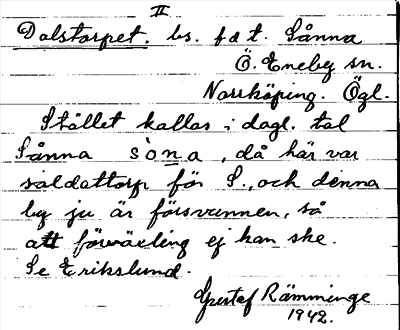 II
Dalstorpet. bs. f.d t. Sånna
Ö. Eneby sn.
Norrköping. Ögl.
Stället kallas i dagl. tal
Sånna sòna, då här var
soldattorp för S., och denna
by ju är försvunnen, så
att förväxling ej kan ske.
Se Erikslund.
Gustaf Rämminge
1942.